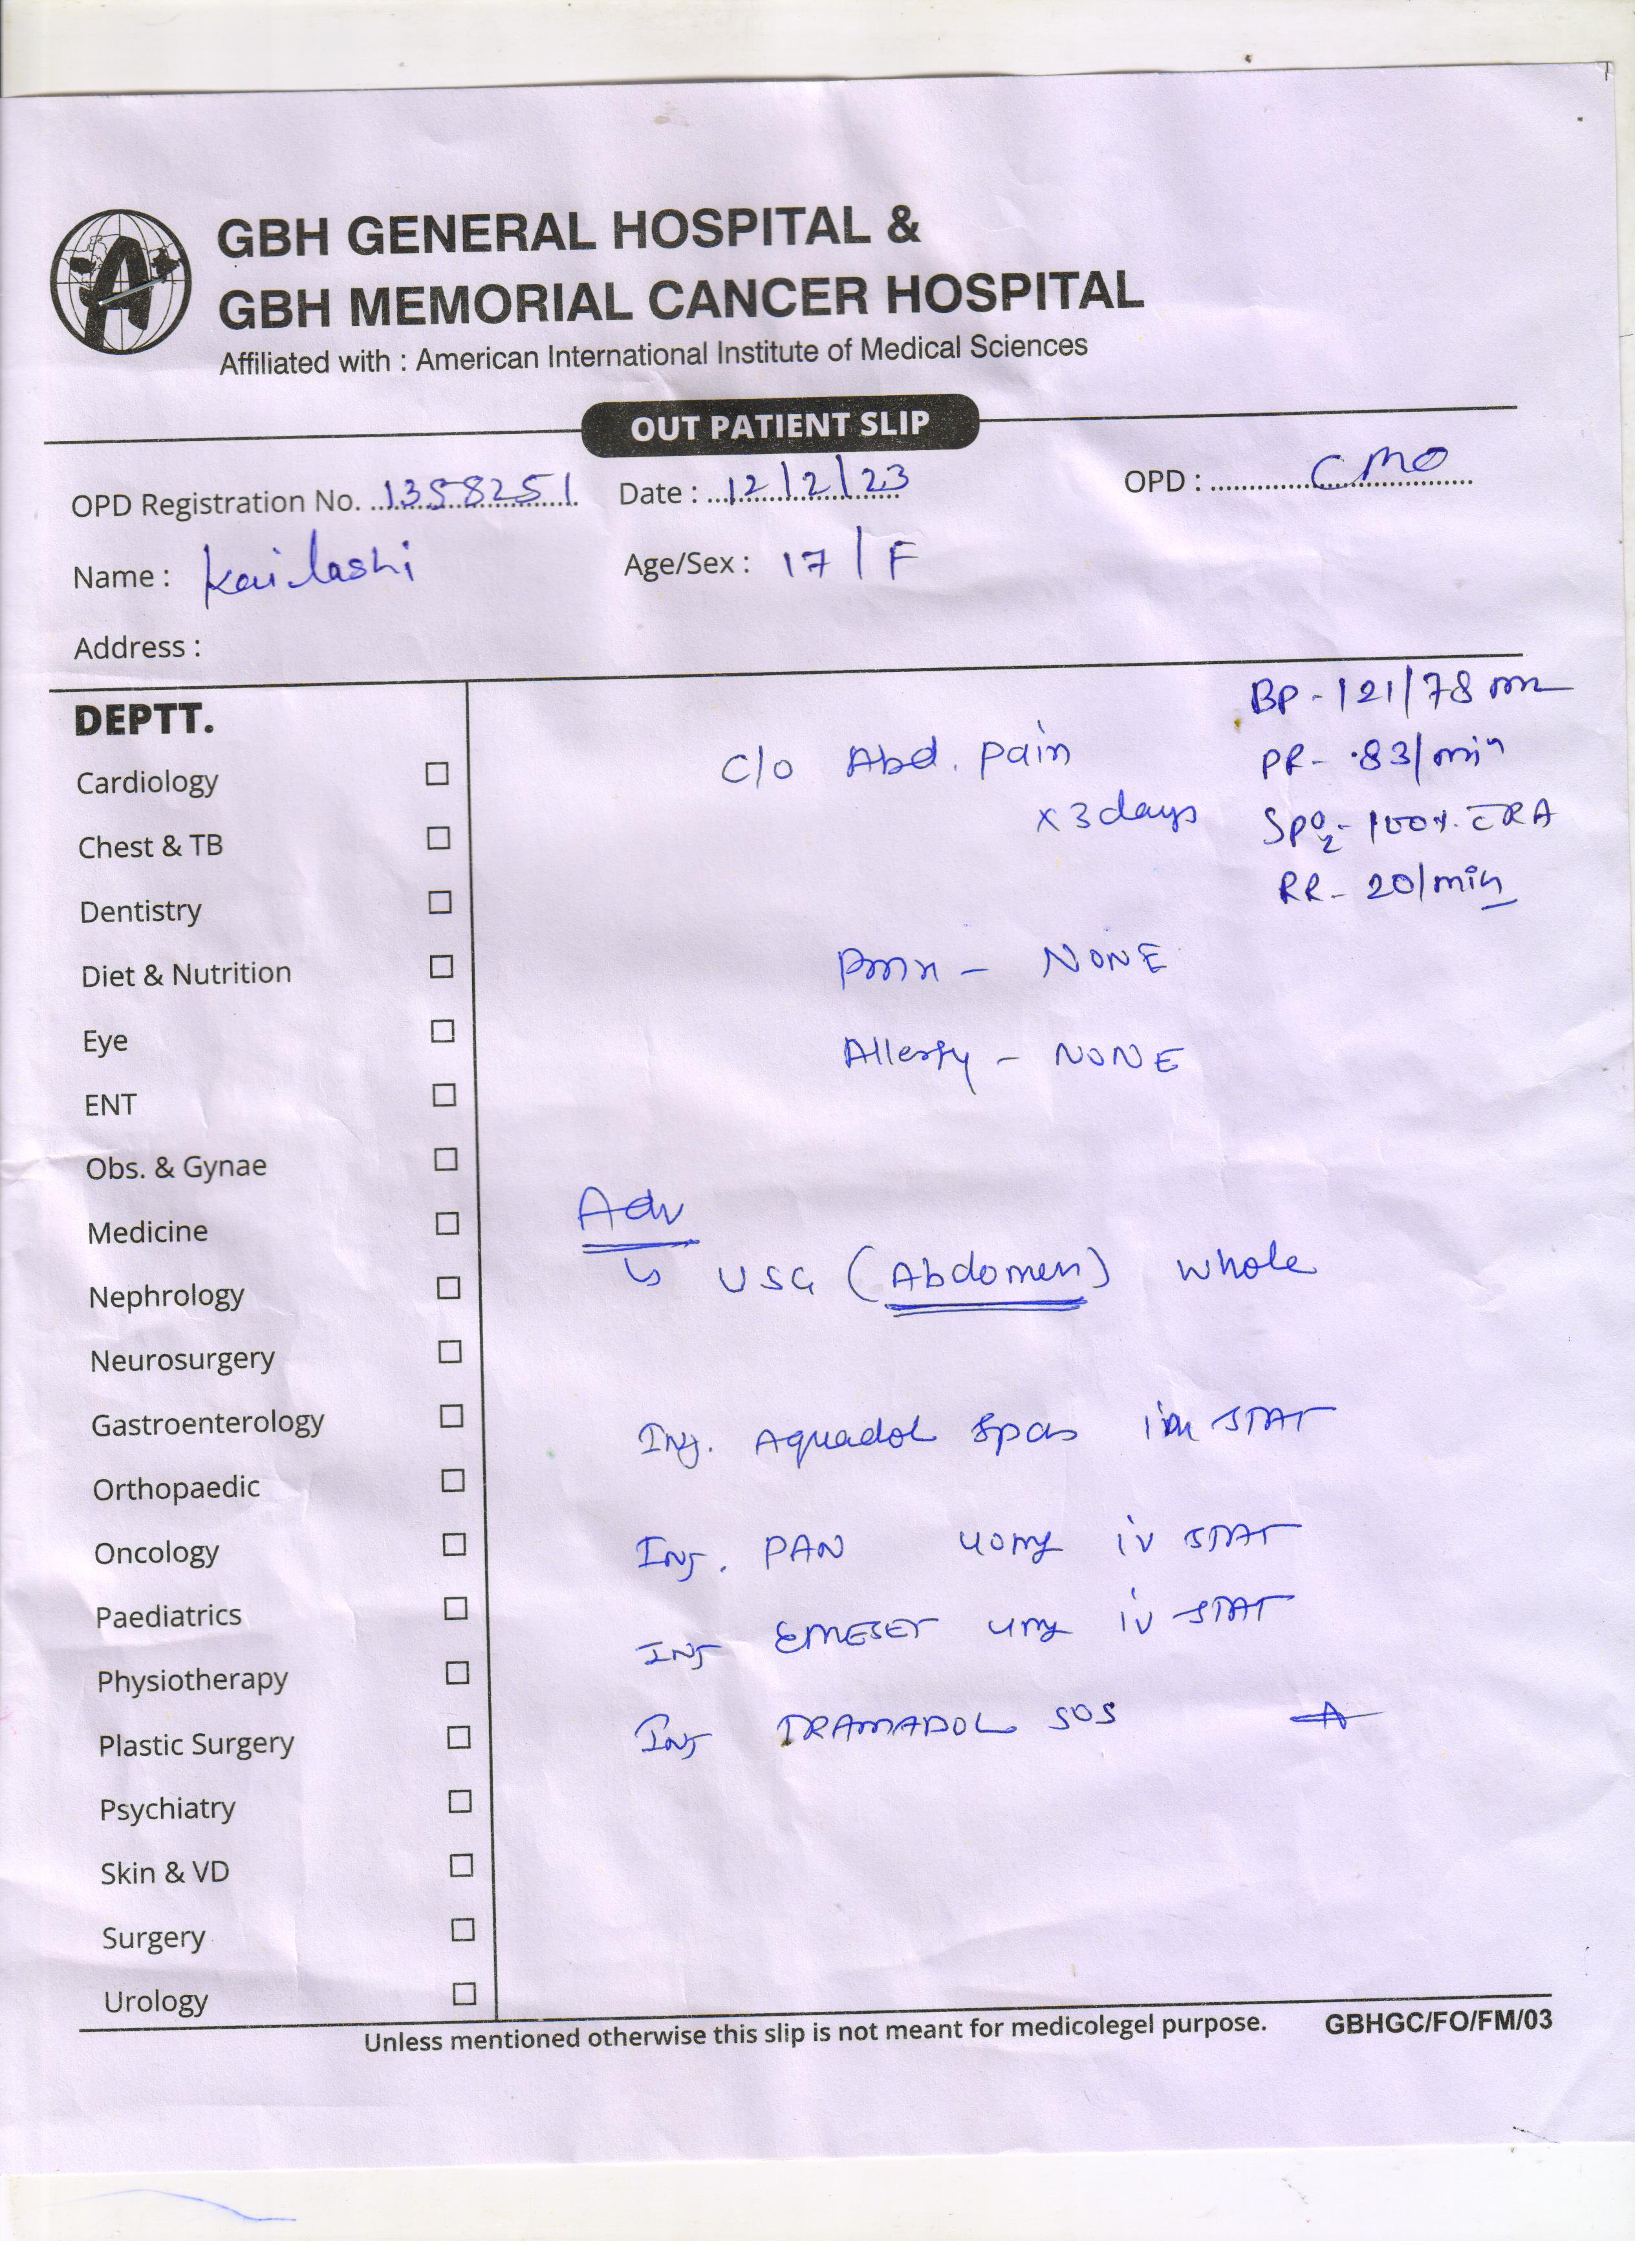 GBH GENERAL HOSPITAL &
GBH MEMORIAL CANCER HOSPITAL
Affiliated with : American International Institute of Medical Sciences
OUT PATIENT SLIP
OPD Registration No. 1358251 Date : 12/2/23 OPD : CMO
Name : Kailashi Age/Sex : 17/F
Address :
BP - 121/78 mm
PR - 83/min
SpO2 - 100% c̄ RA
RR - 20/min
C/o Abd. pain
x 3 days
Pmh - NONE
Allergy - NONE
Adv
↳ USG (Abdomen) whole
Inj. Aquadol spas im STAT
Inj. PAN 40mg iv STAT
Inj EMESET 4mg iv STAT
Inj TRAMADOL SOS
DEPTT.
Cardiology
Chest & TB
Dentistry
Diet & Nutrition
Eye
ENT
Obs. & Gynae
Medicine
Nephrology
Neurosurgery
Gastroenterology
Orthopaedic
Oncology
Paediatrics
Physiotherapy
Plastic Surgery
Psychiatry
Skin & VD
Surgery
Urology
Unless mentioned otherwise this slip is not meant for medicolegel purpose. GBHGC/FO/FM/03